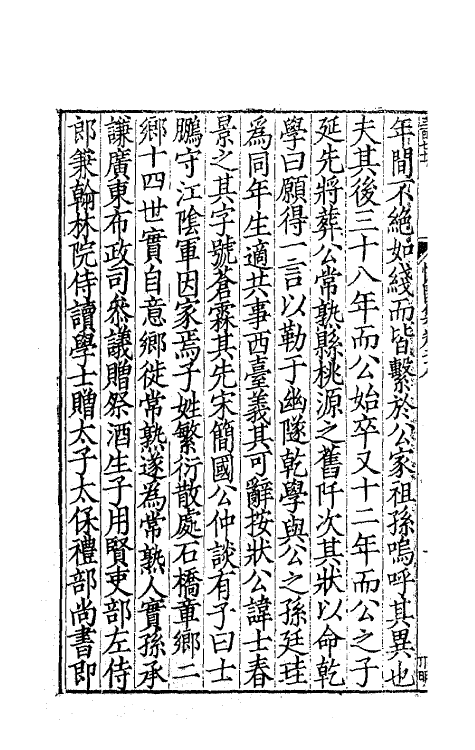 年間不絶如綫而皆繫於公家祖孫嗚呼其異也
夫其後三十八年而公始卒又十二年而公之子
延先將葬公常熟縣桃源之舊阡次其狀以命乾
學曰願得一言以勒于幽隧乾學與公之孫廷珪
為同年生適共事西臺義其可辭按狀公諱士春
景之其字號蒼霖其先宋簡國公仲談有子曰士
鵬守江陰軍因家焉子姓繁衍散處石橋章鄉二
鄉十四世實自意鄉徙常熟遂為常熟人實孫承
謙廣東布政司叅議贈祭酒生子用賢吏部左侍
郎兼翰林院侍讀學士贈太子太保禮部尚書即